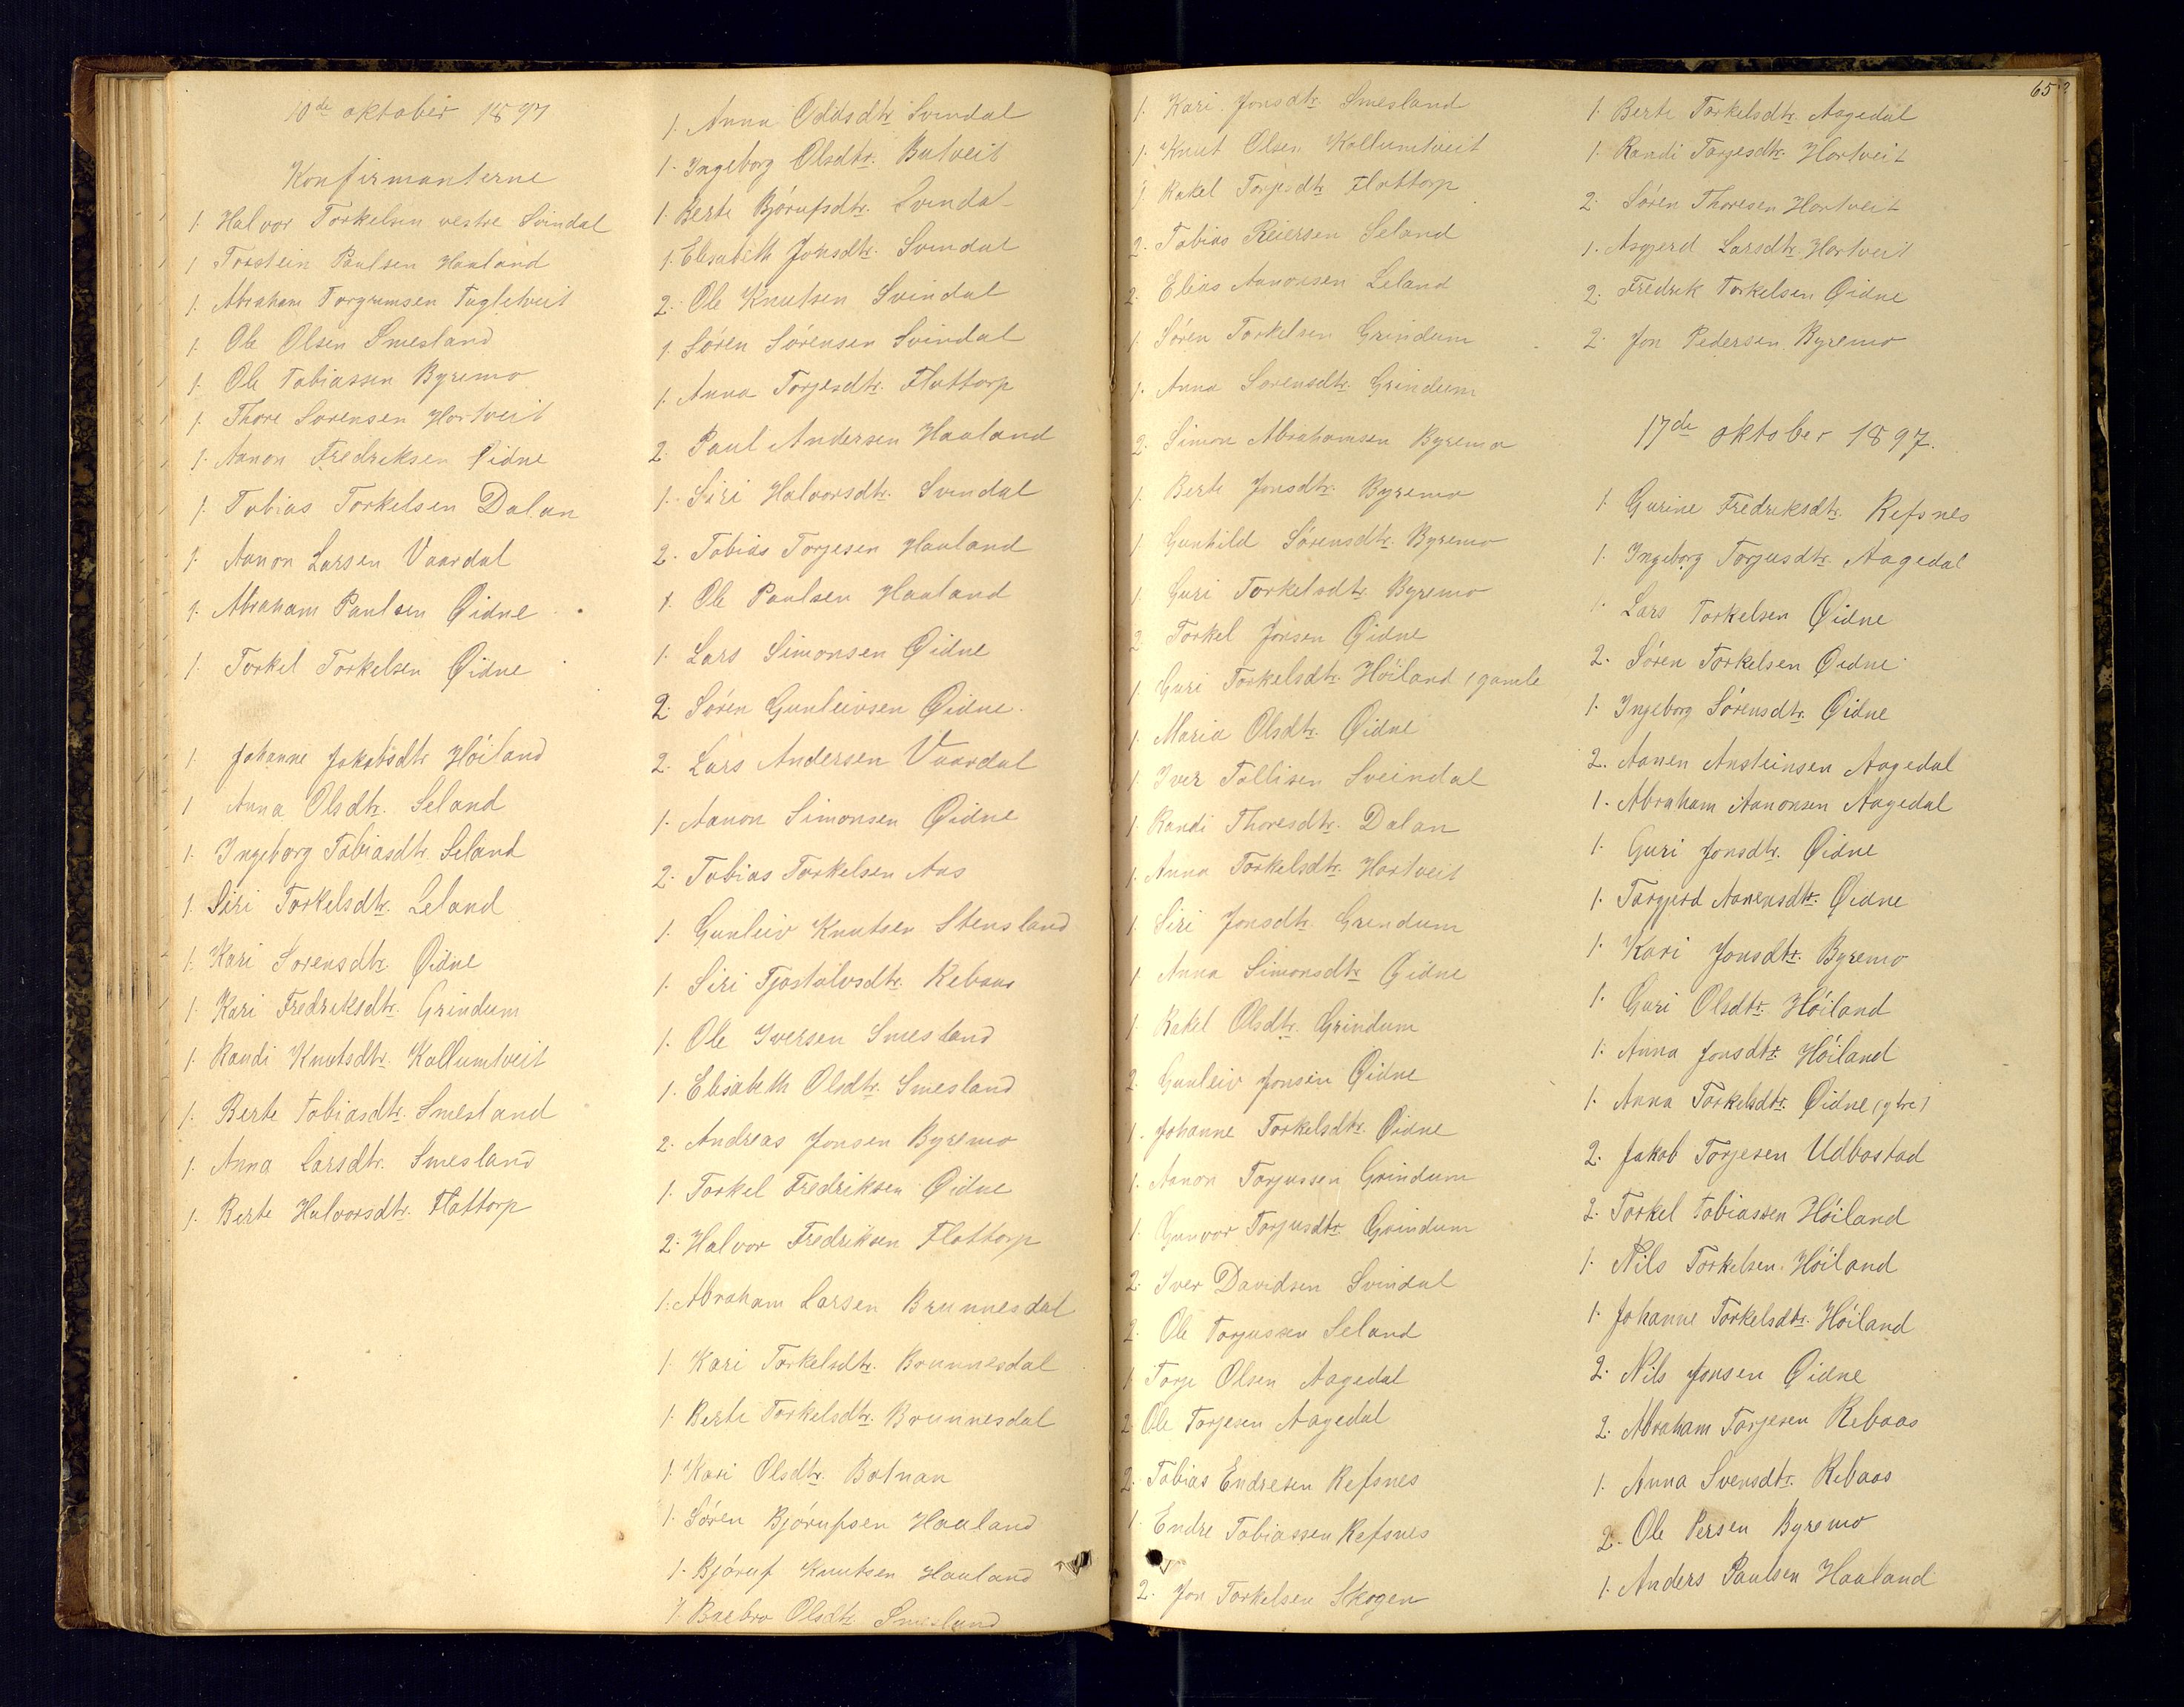 10de oktober 1897
Konfirmanterne
1. Halvor Torkelsen vestre Svindal
1 Torstein Paulsen Haaland
1. Abraham Torgrimsen Fugletveit
1. Ole Olsen Smesland
1. Ole Tobiassen Byremo
1. Thore Sørensen Hortveit
1. Aanon Fredriksen Øidne
1. Tobias Torkelsen Dalan
1. Aanon Larsen Vaardal
1. Abraham Paulsen Øidne
1. Torkel Torkelsen Øidne
1. Johanne Jakobsdtr Höiland
1 Anna Olsdtr. Seland
1. Ingeborg Tobiasdtr. Seland
1. Siri Torkelsdtr. Leland
1. Kari Sorensdtr. Øidne
1. Kari Fredriksdtr. Grindum
1. Randi Knutsdtr. Kollumtveit
1. Berte Tobiasdtr. Smesland
1. Anna Larsdtr. Smesland
1. Berte Halvorsdtr. Flottorp
1. Anna Oddsdtr Svindal
1. Ingeborg Olsdtr. Butveit
1. Berte Björufsdtr. Svindal
1. Elisabeth Jonsdtr. Svindal
2. Ole Knutsen Svindal
1. Sören Sörensen Svindal
1. Anna Torjesdtr. Flottorp
2. Paul Andersen Haaland
1. Siri Halvorsdtr. Svindal
2. Tobias Torjesen Haaland
1. Ole Paulsen Haaland
1. Lars Simonsen Øidne
2. Sören Gunleivsen Øidne.
2. Lars Andersen Vaardal
1. Aanon Simonsen Øidne
2. Tobias Torkelsen Aas
1. Gunleiv Knutsen Stensland
1. Siri Tjostolvsdtr. Rebaas
1. Ole Iversen Smesland
1. Elisabeth Olsdtr. Smesland
2. Andreas Jonsen Byremo
1. Torkel Fredriksen Øidne
2. Halvor Fredriksen Flottorp
1. Abraham Larsen Brunnesdal
1. Kari Torkelsdtr. Brunnesdal
1. Berte Torkelsdtr. Brunnesdal
1. Kari Olsdtr. Botnan
1. Sören Björufsen Haaland
1. Björuf Knutsen Haaland
1. Baebro Olsdtr Smesland
1. Kari Jonsdtr Smesland
1. Knut Olsen Kollumtveit
1 Rakel Torjesdtr Flottorp
2. Tobias Reiersen Seland
2. Elias Aanonsen Leland
1. Sören Torkelsen Grindum
1. Anna Sorensdtr. Grindum
2. Simon Abrahamsen Byremo
1. Berte Jonsdtr. Byremo
1 Gunhild Sörensdtr. Byremo
1. Guri Torkelsdtr. Byremo
2 Torkel Jonsen Øidne
1. Guri Torkelsdtr. Höiland (gamle
1. Maria Olsdtr. Øidne
1 Iver Tallisen Sveindal
1. Randi Thoresdtr. Dalan
1. Anna Torkelsdtr. Hortveit
1. Siri Jonsdtr. Grindum
1 Anna Simonsdtr Øidne
1 Rakel Olsdtr. Grindum
2. Gunleiv Jonsen Øidne
1. Johanne Torkelsdtr. Øidne
1. Aanon Torjussen Grindum
1. Gunvor Torjusdtr Grindum
2. Iver Davidsen Svindal
2. Ole Torjussen Seland
1 Torje Olsen Aagedal
2 Ole Torjesen Aagedal
2. Tobias Endresen Refsnes
1. Endre Tobiassen Refsnes
2. Jon Torkelsen Skogen
65
1. Berte Torkelsdtr. Aagedal
1. Randi Torjesdtr. Hortveit
2. Sören Thoresen Hortveit
1. Asgjerd Larsdtr. Hortveit
2. Fredrik Torkelsen Øidne
2. Jon Pedersen Byremo
17de oktober 1897.
1. Gurine Fredriksdtr. Refsnes
1. Ingeborg Torjusdtr. Aagedal
1. Lars Torkelsen Øidne
2. Sören Torkelsen Øidne
1. Ingeborg Sörensdtr. Øidne
2. Aanen Ansteinsen Aagedal
1. Abraham Aanonsen Aagedal
1. Guri Jonsdtr. Øidne
1. Torgjerd Aanensdtr. Øidne
1. Kari Jonsdtr. Byremo
1. Guri Olsdtr. Höiland
1. Anna Jonsdtr Höiland
1. Anna Torkelsdtr. Øidne (ytre)
2. Jakob Torjesen Udbostad
2. Torkel Tobiassen Höiland
1. Nils Torkelsen Höiland
1. Johanne Torkelsdtr. Höiland
2. Nils Jonsen Øidne
2. Abraham Torjesen Rebaas
1. Anna Svensdtr. Rebaas
2. Ole Persen Byremo
1. Anders Paulsen Haaland